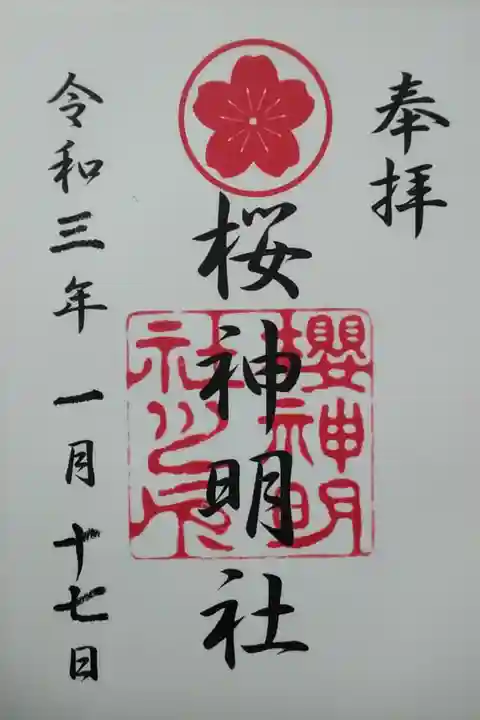 奉拝
桜神明社
櫻神明
社之印
令和三年 一月 十七日